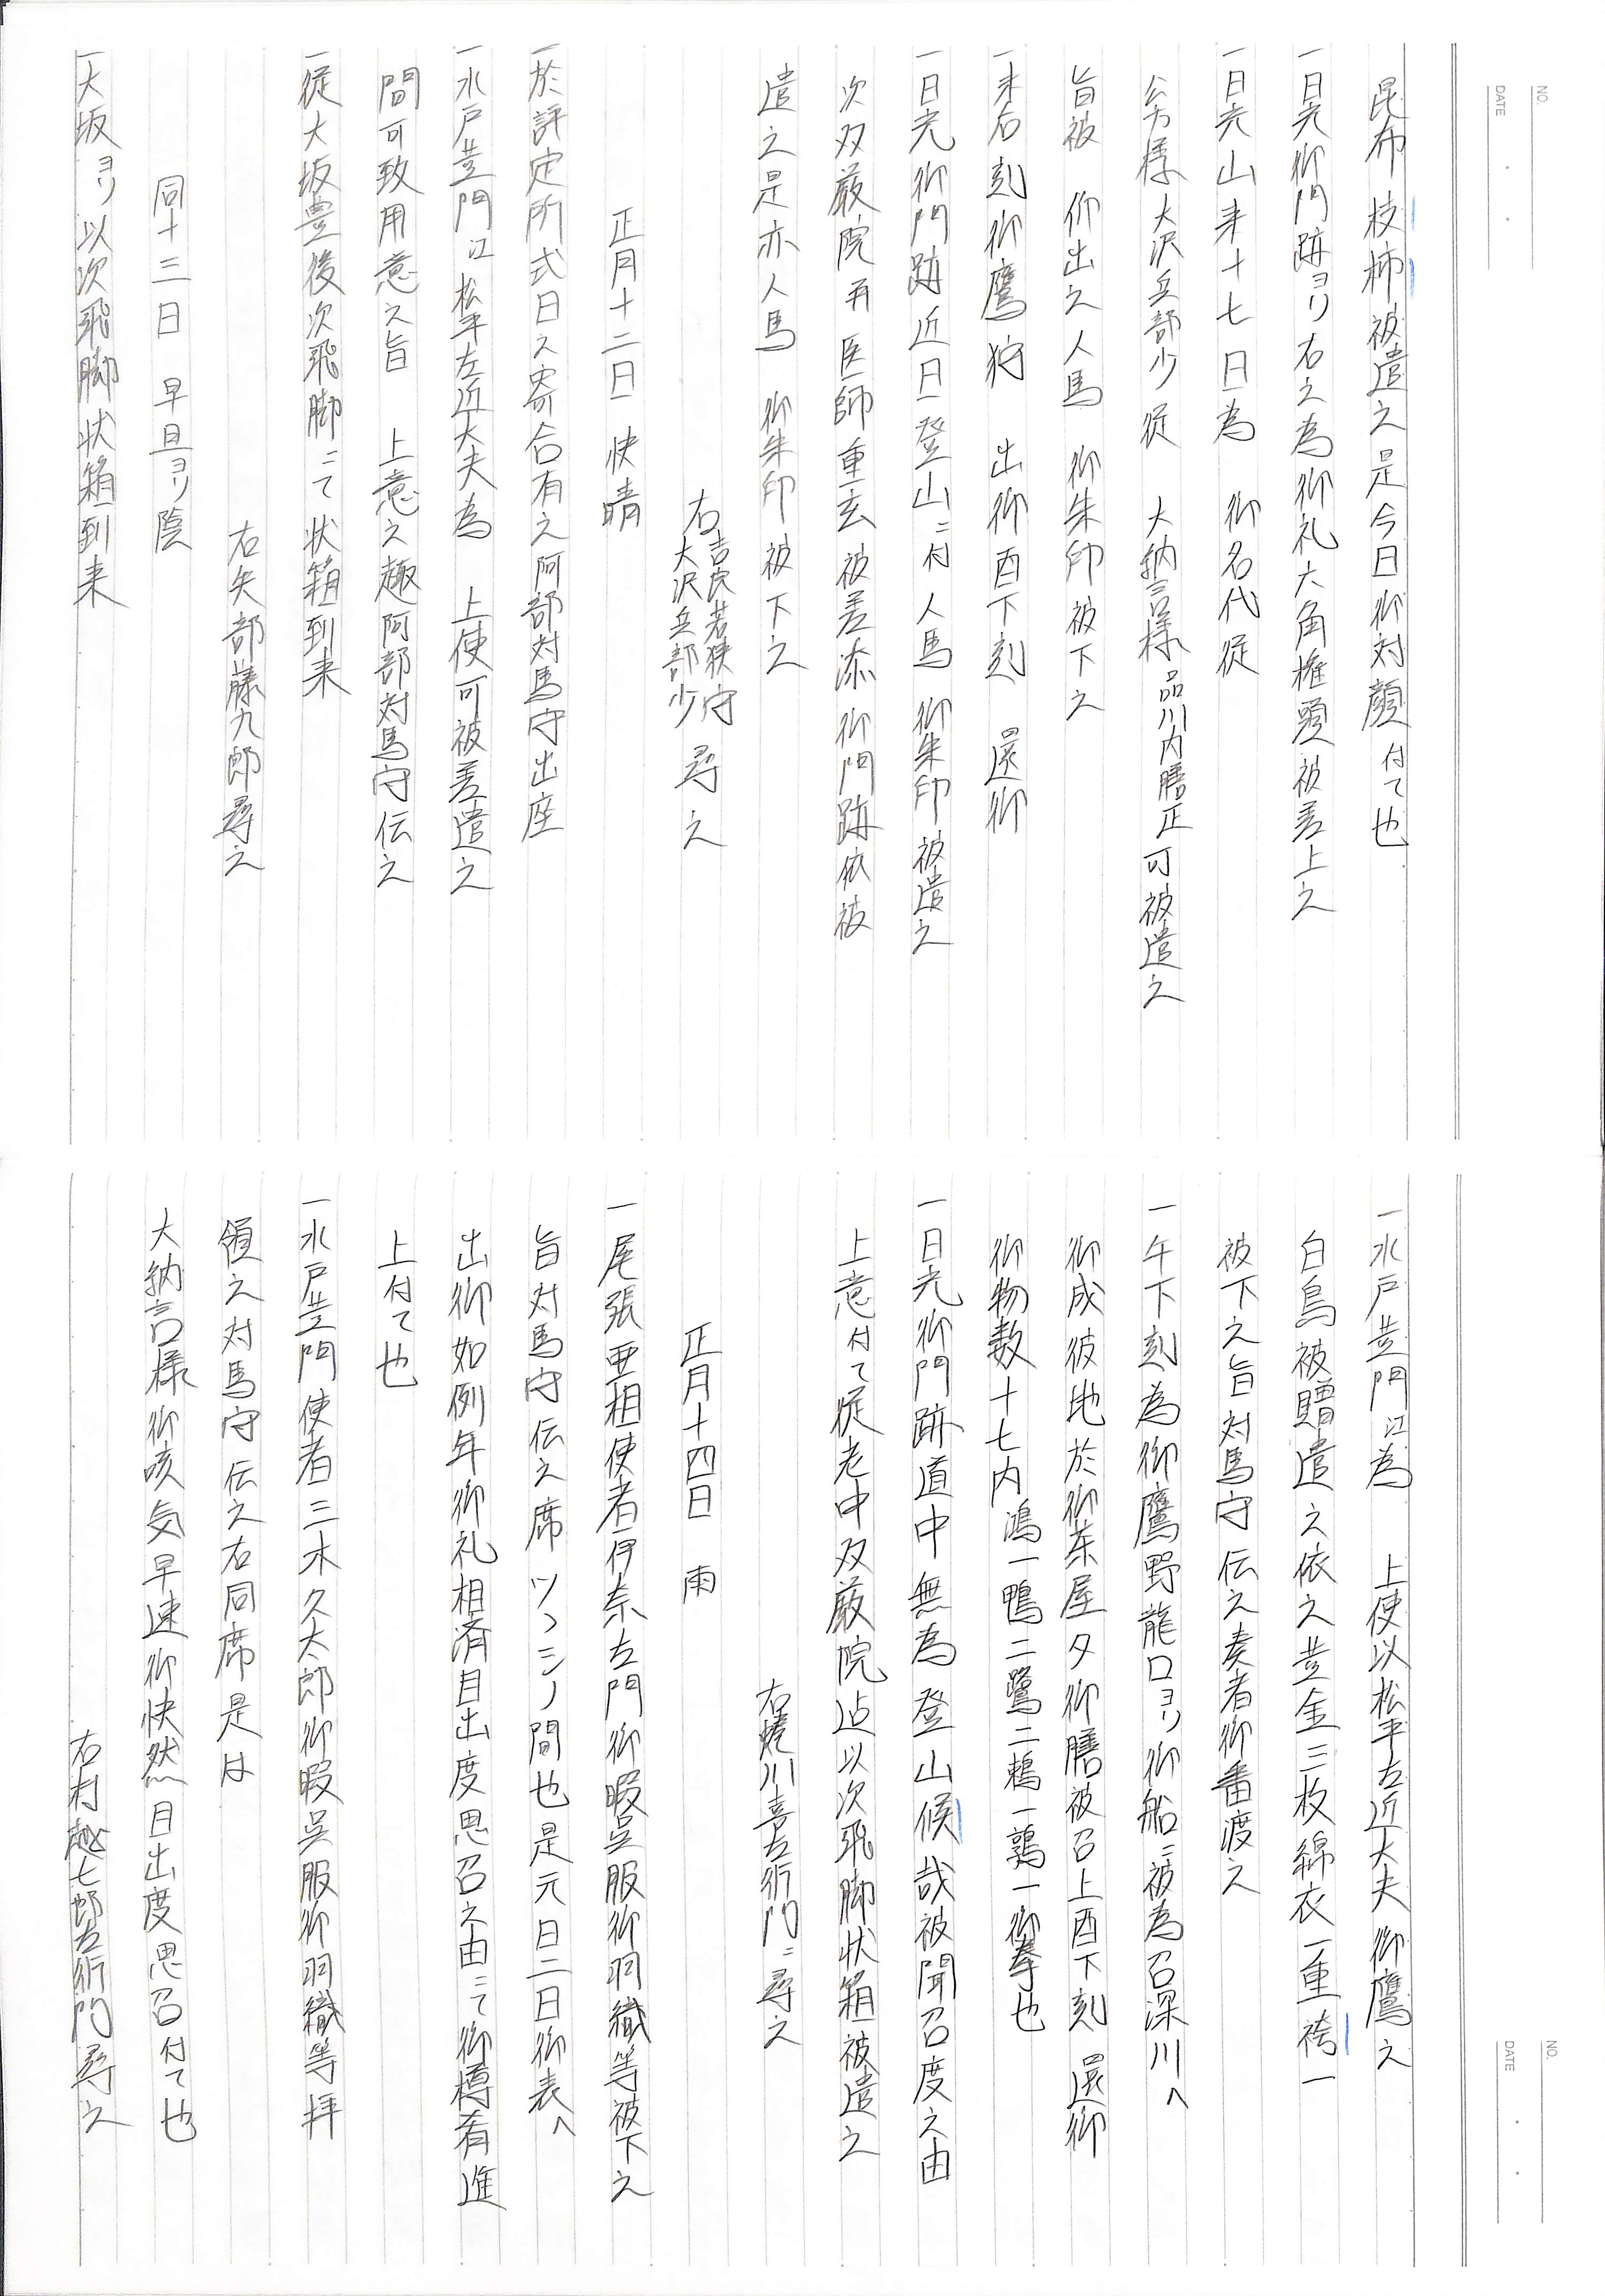 NO.
DATE
昆布 枝柿 被遣之是今日御対顔付て也
一日光御門跡ヨリ右之為御礼六角権頭被差上之
一日光山来十七日為 御名代従
公方様大沢兵部少従 大納言様品川内膳正可被遣之
旨被 仰出之人馬 御朱印被下之
一未后刻御鷹狩 出御酉下刻 還御
一日光御門跡近日登山ニ付人馬 御朱印被遣之
次双厳院再医師重玄被差添御門跡依被
遣之是亦人馬 御朱印被下之
右吉良若狭守大沢兵部少尋之
正月十二日 快晴
一於評定所式日之寄合有之阿部対馬守出座
一水戸黄門江松平左近大夫為 上使可被差遣之
間可致用意之旨 上意之趣阿部対馬守伝之
一従大坂豊後次飛脚ニて状箱到来
右矢部藤九郎尋之
同十三日 早旦ヨリ陰
一大坂ヨリ以次飛脚状箱到来
NO.
DATE
一水戸黄門江為 上使以松平左近大夫御鷹之
白鳥被贈遣之依之黄金三枚綿衣一重袴一
被下之旨対馬守伝之奏者御番渡之
一午下刻為御鷹野龍口ヨリ御船ニ被為召深川へ
御成彼地於御茶屋夕御膳被召上酉下刻 還御
御物数十七内 鴻一鴨二鷺二鶫一鶉一御拳也
一日光御門跡道中無為登山候哉被聞召度之由
上意付て従老中双厳院迠以次飛脚状箱被遣之
右蜷川喜左衛門ニ尋之
正月十四日 雨
一尾張亜相使者伊奈左門御暇呉服御羽織等被下之
旨対馬守伝之席ツヽシノ間也是元日二日御表へ
出御如例年御礼相済目出度思召之由ニて御樽肴進
上付て也
一水戸黄門使者三木久太郎御暇呉服御羽織等拝
領之対馬守伝之右同席是は
大納言様御咳気早速御快然目出度思召付て也
右村越七郎左衛門尋之